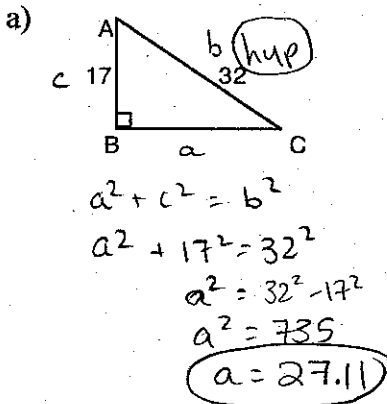 a)
A
b hyp
c 17 32
B a C
a² + c² = b²
a² + 17² = 32²
a² = 32² - 17²
a² = 735
a = 27.11